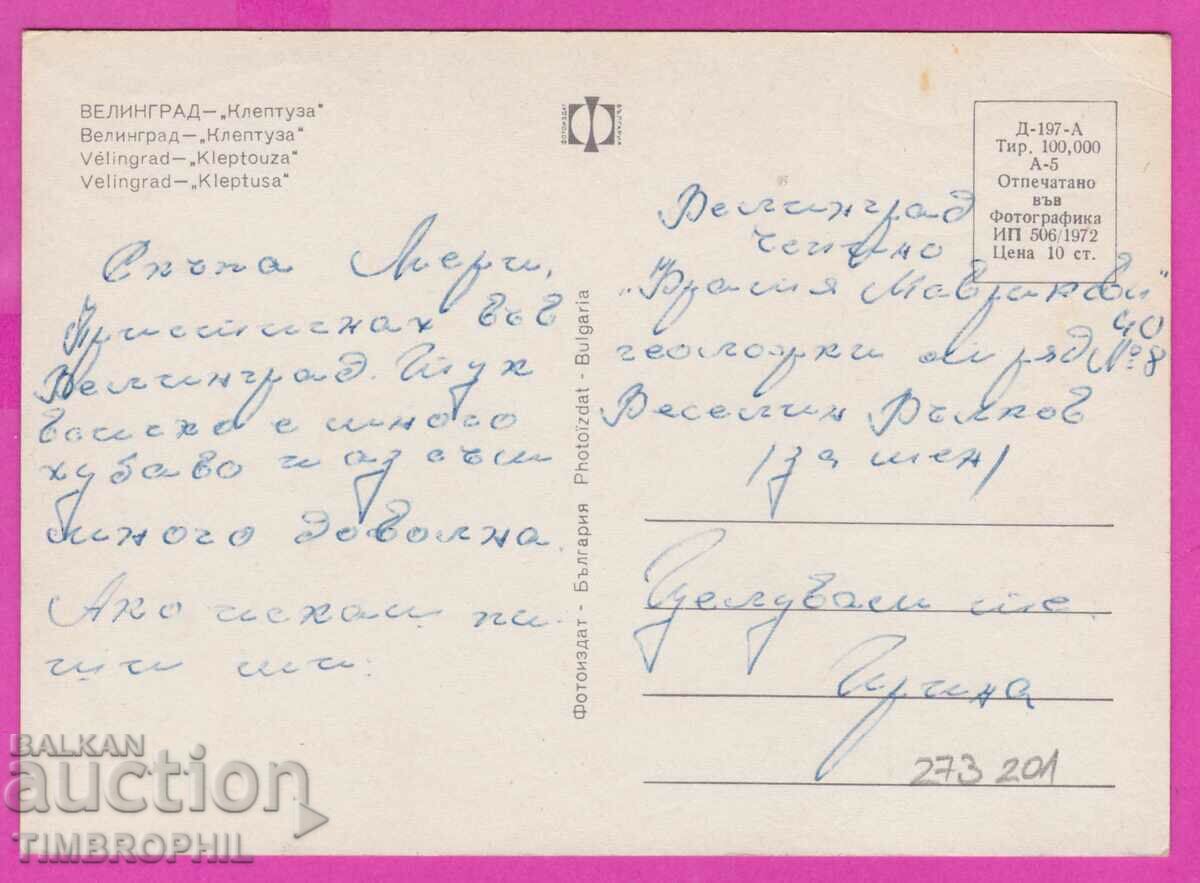 ВЕЛИНГРАД—„Клептуза"
Велинград—„Клептуза"
Vélingrad—„Kleptouza"
Velingrad—„Kleptusa"
ФОТОИЗДАТ
БЪЛГАРИЯ
Д-197-А
Тир. 100,000
А-5
Отпечатано
във
Фотографика
ИП 506/1972
Цена 10 ст.
Скъпа Мери,
Пристигнах във
Велинград. Тук
всичко е много
хубаво и аз съм
много доволна.
Ако искаш пи-
ши ми.
Фотоиздат - България Photoïzdat - Bulgaria
Велинград
Чепино
"Братя Маврикови" 40
геоложки отряд №8
Веселин Вълков
/за мен/
Целувам те
Ирина
273 201
BALKAN
auction
TIMBROPHIL